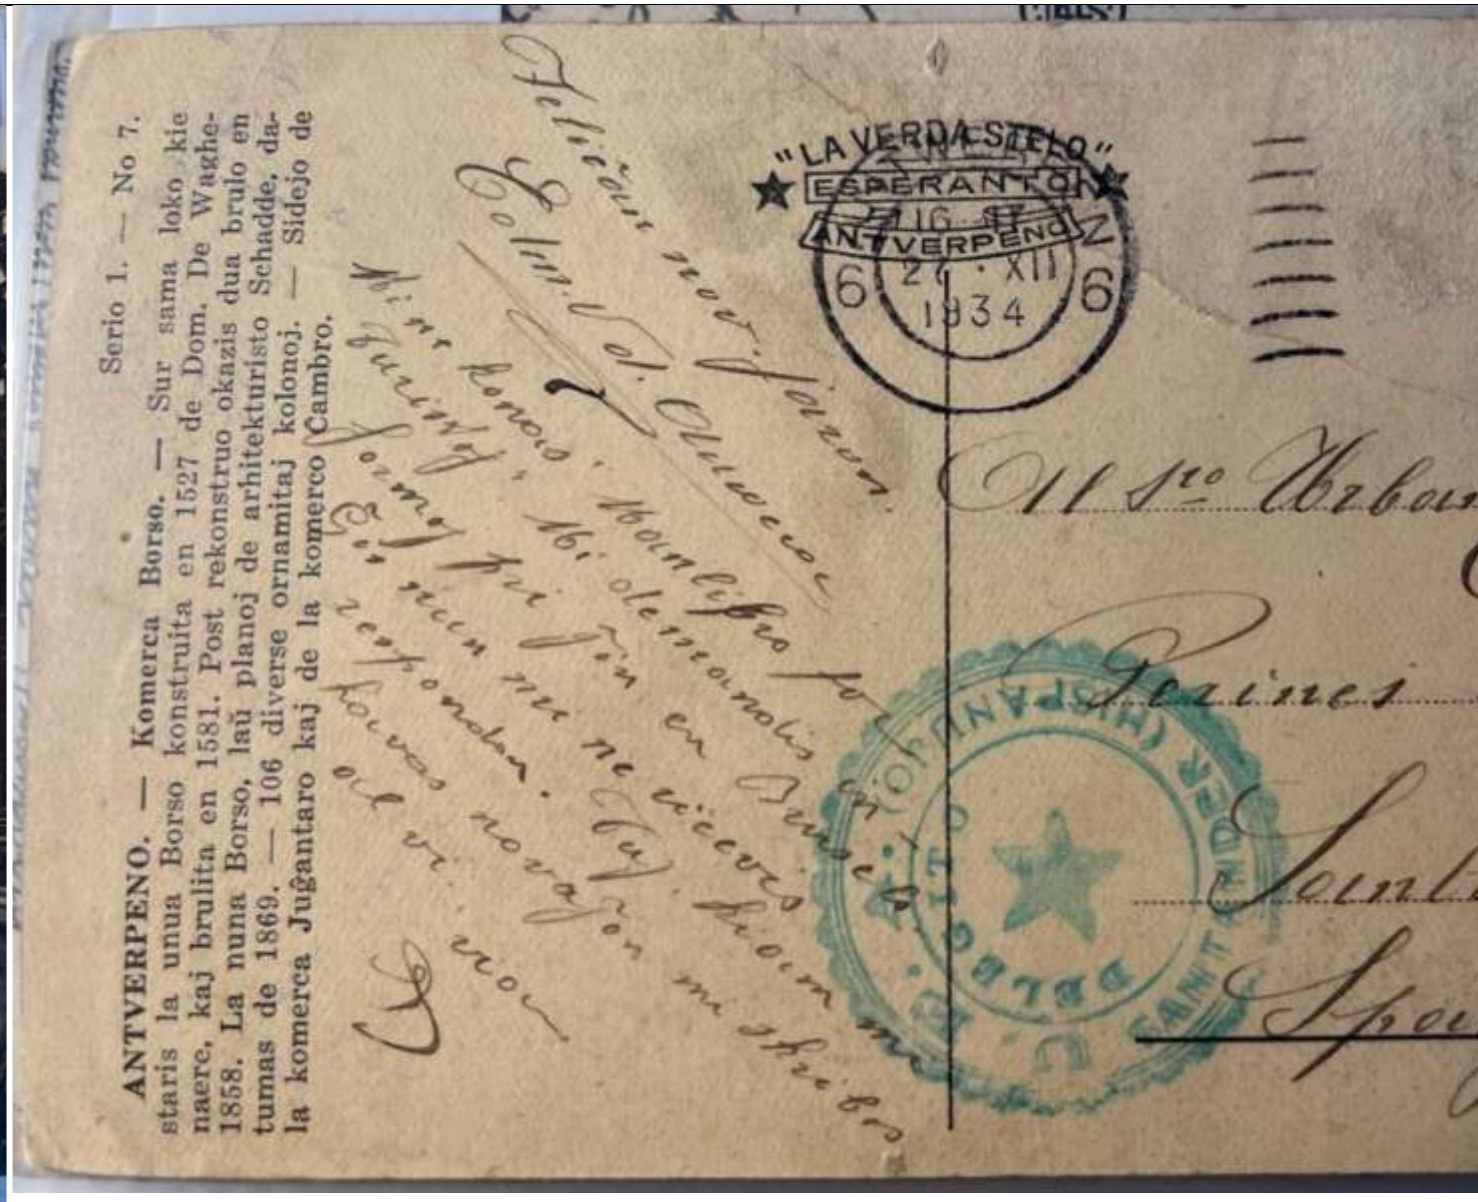 Serio 1. — No 7.
ANTVERPENO. — Komerca Borso. — Sur sama loko kie
staris la unua Borso konstruita en 1527 de Dom. De Waghe-
naere, kaj brulita en 1581. Post rekonstruo okazis dua brulo en
1858. La nuna Borso, laŭ planoj de arhitekturisto Schadde, da-
tumas de 1869. — 106 diverse ornamitaj kolonoj. — Sidejo de
la komerca Juĝantaro kaj de la komerco Cambro.
Feliĉan nov. jaron.
Estim.
Mi ne konas manlibro por
Turistoj. Mi demandis in
formoj pri ĝin en Brusel.
Ĝis nun mi ne ricevis
respondon. Tuj kiam mi
havas novaĵon mi skribos
al vi. via
"LA VERDA STELO"
ESPERANTO
ANTVERPENO
16
27 · XII
1934
6 6
Al sro Urban
Perines
Sant
Spa
U. E. A.
DELEGITO
SANTANDER (HISPANUJO)